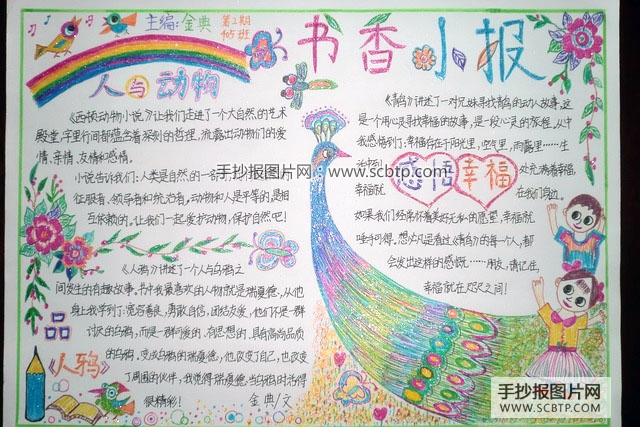 主编:金典
第2期
405班
书香小报
人与动物
《西顿动物小说》让我们走进了一个大自然的艺术
殿堂,字里行间都蕴含着深刻的哲理,流露出动物们的爱
情、亲情、友情和感情。
小说告诉我们:人类是自然的一
征服者、领导者和统治者。动物和人是平等的,是相
互依赖的。让我们一起爱护动物,保护自然吧!
《青鸟》讲述了一对兄妹寻找青鸟的动人故事,这
是一个用心灵寻找幸福的故事,是一段心灵的旅程。从中
我感悟到:幸福存在于阳光里,空气里,雨露里
处充满着幸福,
幸福就
在我们身边。
感悟幸福
如果我们经常怀着美好无私的愿望,幸福就
唾手可得。想必凡是看过《青鸟》的每一个人,都
会发出这样的感慨……朋友,请记住,
幸福就在
之间!
《人鸦》讲述了一个人与乌鸦之
间发生的有趣故事。书中我最喜欢的人物就是瑞夏德,从他
身上我学到了:宽容善良,勇敢自信,团结友爱,他们不是一群
讨厌的乌鸦,而是一群可爱的、有思想的、具有高尚品质
的乌鸦。变成乌鸦的瑞夏德,他改变了自己,也改变
了周围的伙伴,我觉得瑞夏德当乌鸦时活得
很精彩!
金典/文
品
《人鸦》
手抄报图片网:www.scbtp.com
手抄报图片网
WWW.SCBTP.COM